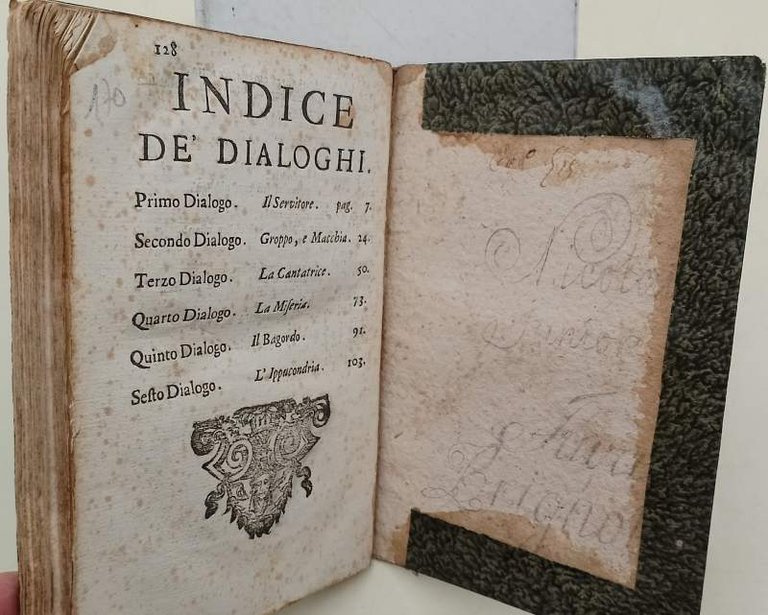 128
170
INDICE
DE' DIALOGHI.
Primo Dialogo. Il Servitore. pag. 7.
Secondo Dialogo. Groppo, e Macchia. 24.
Terzo Dialogo. La Cantatrice. 50.
Quarto Dialogo. La Miſeria. 73.
Quinto Dialogo. Il Bagordo. 91.
Seſto Dialogo. L'Ippucondria. 103.